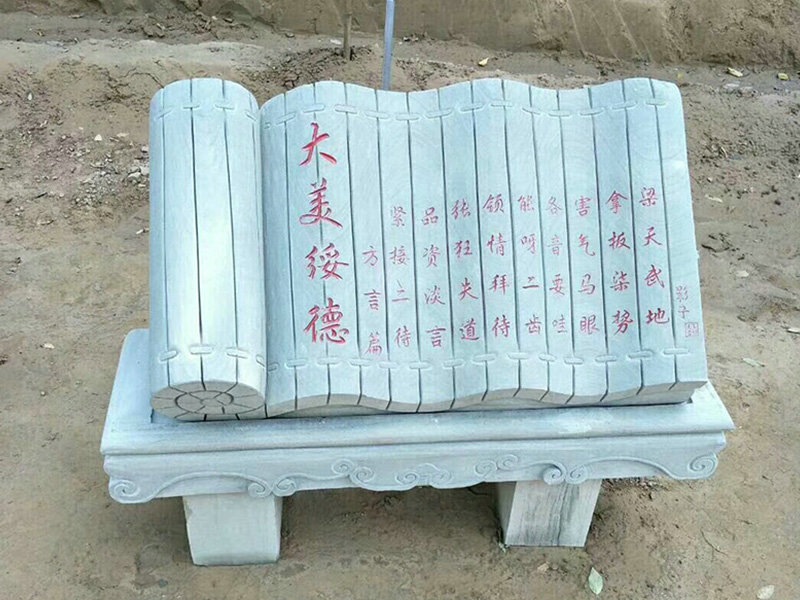 大美绥德
方言篇
紧接二待
品资淡言
张狂失道
领情拜待
能呀二齿
各音要哇
害气马眼
拿扳柒势
梁天武地
影子